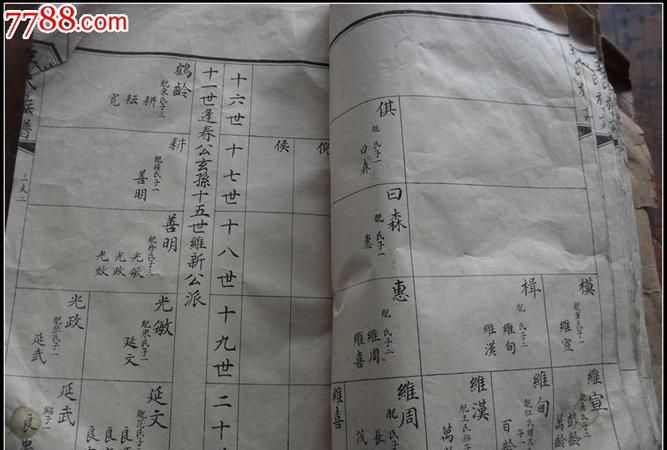 7788.com
王氏族譜
模
配 氏子一
維宣
楫
配 氏子二
維甸
維漢
俱
配 氏子一
曰森
曰森
配 氏子一
惠
惠
配 氏子二
維周
維喜
維宣
彭齡
萬齡
維甸
百齡
維漢
配王氏
維周
配
長
維喜
茂
俁
侯
十六世十七世十八世十九世二十
十一世逢春公玄孫十五世維新公派
鶴齡
配宋氏子三
耕
耘
寬
耕
配侯氏子一
善明
善明
配徐氏子三
光敏
光政
光效
光敏
配宋氏子一
延文
光政
延武
延文
良
良
延武
良忠
王氏族譜